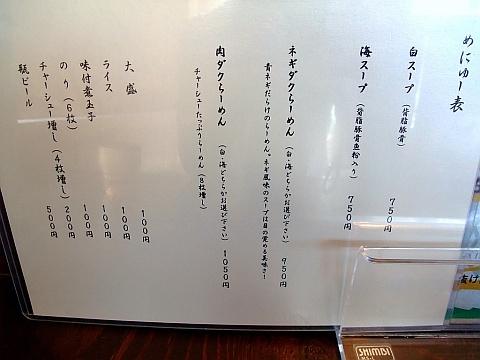 めにゅー表
白スープ（背脂豚骨） 750円
海スープ（背脂豚骨魚粉入り） 750円
ネギダクらーめん（白・海どちらかお選び下さい） 950円
青ネギだらけのらーめん。ネギ風味のスープは目の覚める美味さ！
肉ダクらーめん（白・海どちらかお選び下さい） 1050円
チャーシューたっぷりらーめん（8枚増し）
大盛 100円
ライス 100円
味付煮玉子 100円
のり（6枚） 200円
チャーシュー増し（4枚増し） 500円
瓶ビール
SHIMBI